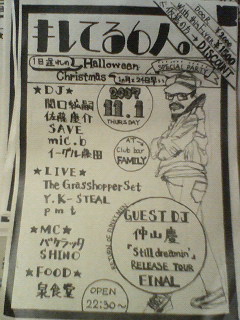 キレてる01人。
DISCOUNT
1日遅れのHalloween
Christmas
SPECIAL PARTY
★DJ★
関口紘嗣
佐藤慶介
SAVE
mic.b
イーグル藤田
2007
11.1
THURSDAY
AT
Club bar
FAMILY
★LIVE★
The Grasshopper Set
Y.K-STEAL
pmt
★MC★
バケラッタ
SHINO
★FOOD★
泉食堂
GUEST DJ
仲山慶
"Still dreamin'"
RELEASE TOUR
FINAL
OPEN
22:30~